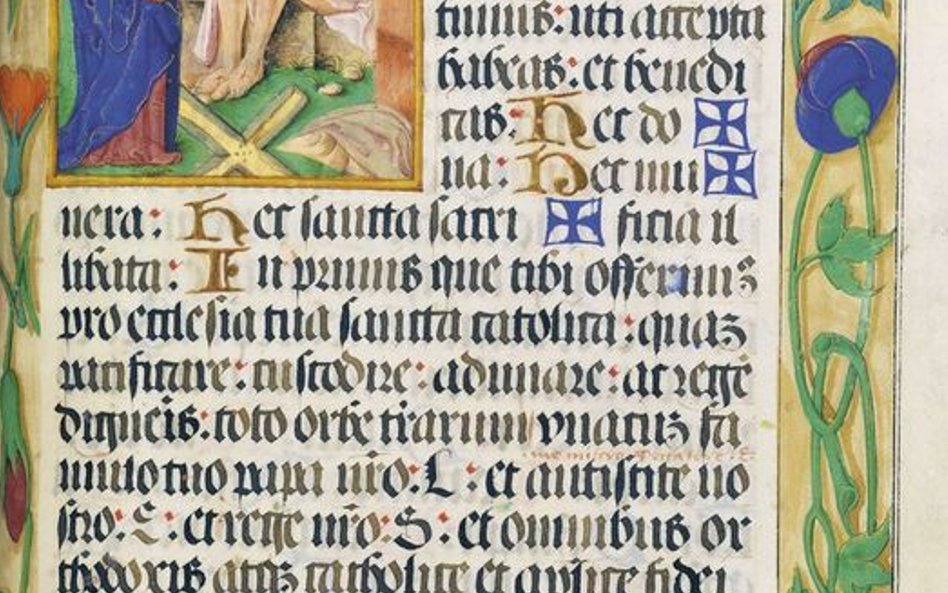 timus: uti accepta
habeas: et benedi
cas: Hec do ✠
na: Hec mu ✠
nera: Hec sancta sacri ✠ ficia il
libata: In primis que tibi offerimꝰ
pro ecclesia tua sancta catolica: quaꝫ
pacificare: custodire: adunare: ac rege
digneis: toto orbe trarum vna cuꝫ fa
mulo tuo papa nro: L: et antistite no
stro: E: et rege nro: S: et omnibus or
thodoxis atqꝫ catholice et aplice fidei